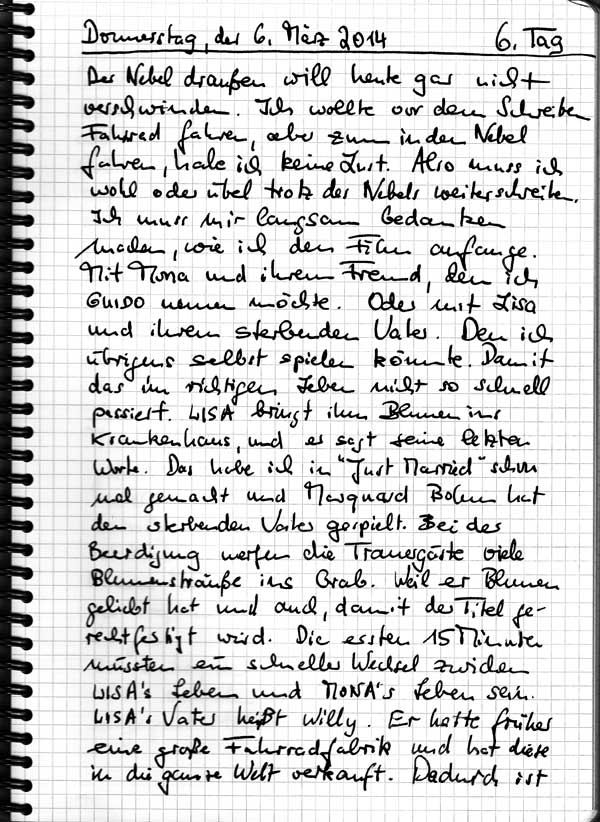 Donnerstag, der 6. März 2014 6. Tag
Der Nebel draußen will heute gar nicht
verschwinden. Ich wollte vor dem Schreiben
Fahrrad fahren, aber zum in den Nebel
fahren, habe ich keine Lust. Also muss ich
wohl oder übel trotz des Nebels weiterschreiben.
Ich muss mir langsam Gedanken
machen, wie ich den Film anfange.
Mit Mona und ihrem Freund, den ich
GUIDO nennen möchte. Oder mit Lisa
und ihrem sterbenden Vater. Den ich
übrigens selbst spielen könnte. Damit
das im richtigen Leben nicht so schnell
passiert. LISA bringt ihm Blumen ins
Krankenhaus, und er sagt seine letzten
Worte. Das habe ich in "Just Married" schon
mal gemacht und Marquard Bohm hat
den sterbenden Vater gespielt. Bei der
Beerdigung werfen die Trauergäste viele
Blumensträuße ins Grab. Weil er Blumen
geliebt hat und auch, damit der Titel ge-
rechtfertigt wird. Die ersten 15 Minuten
müssten ein schneller Wechsel zwischen
LISA's Leben und MONA's Leben sein.
LISA's Vater heißt Willy. Er hatte früher
eine große Fahrradfabrik und hat diese
in die ganze Welt verkauft. Dadurch ist